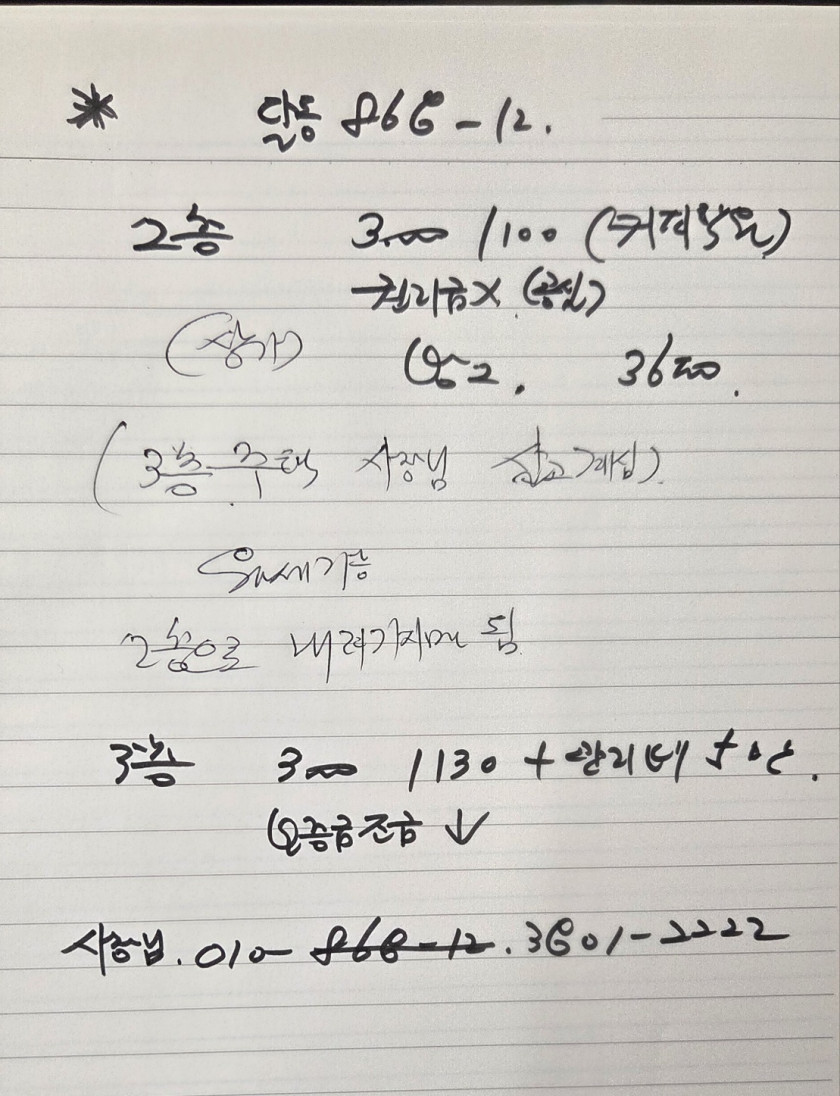 * 달동 868-12.
2층 3000 /100
권리금X (공실)
(상가) 융2. 3600.
(3층 주택 사장님 살고계심)
2층으로 내려가지면 됨
3층 3000 /130 + 관리비
보증금조금 ↓
사장님. 010- 868-12. 3801-2222